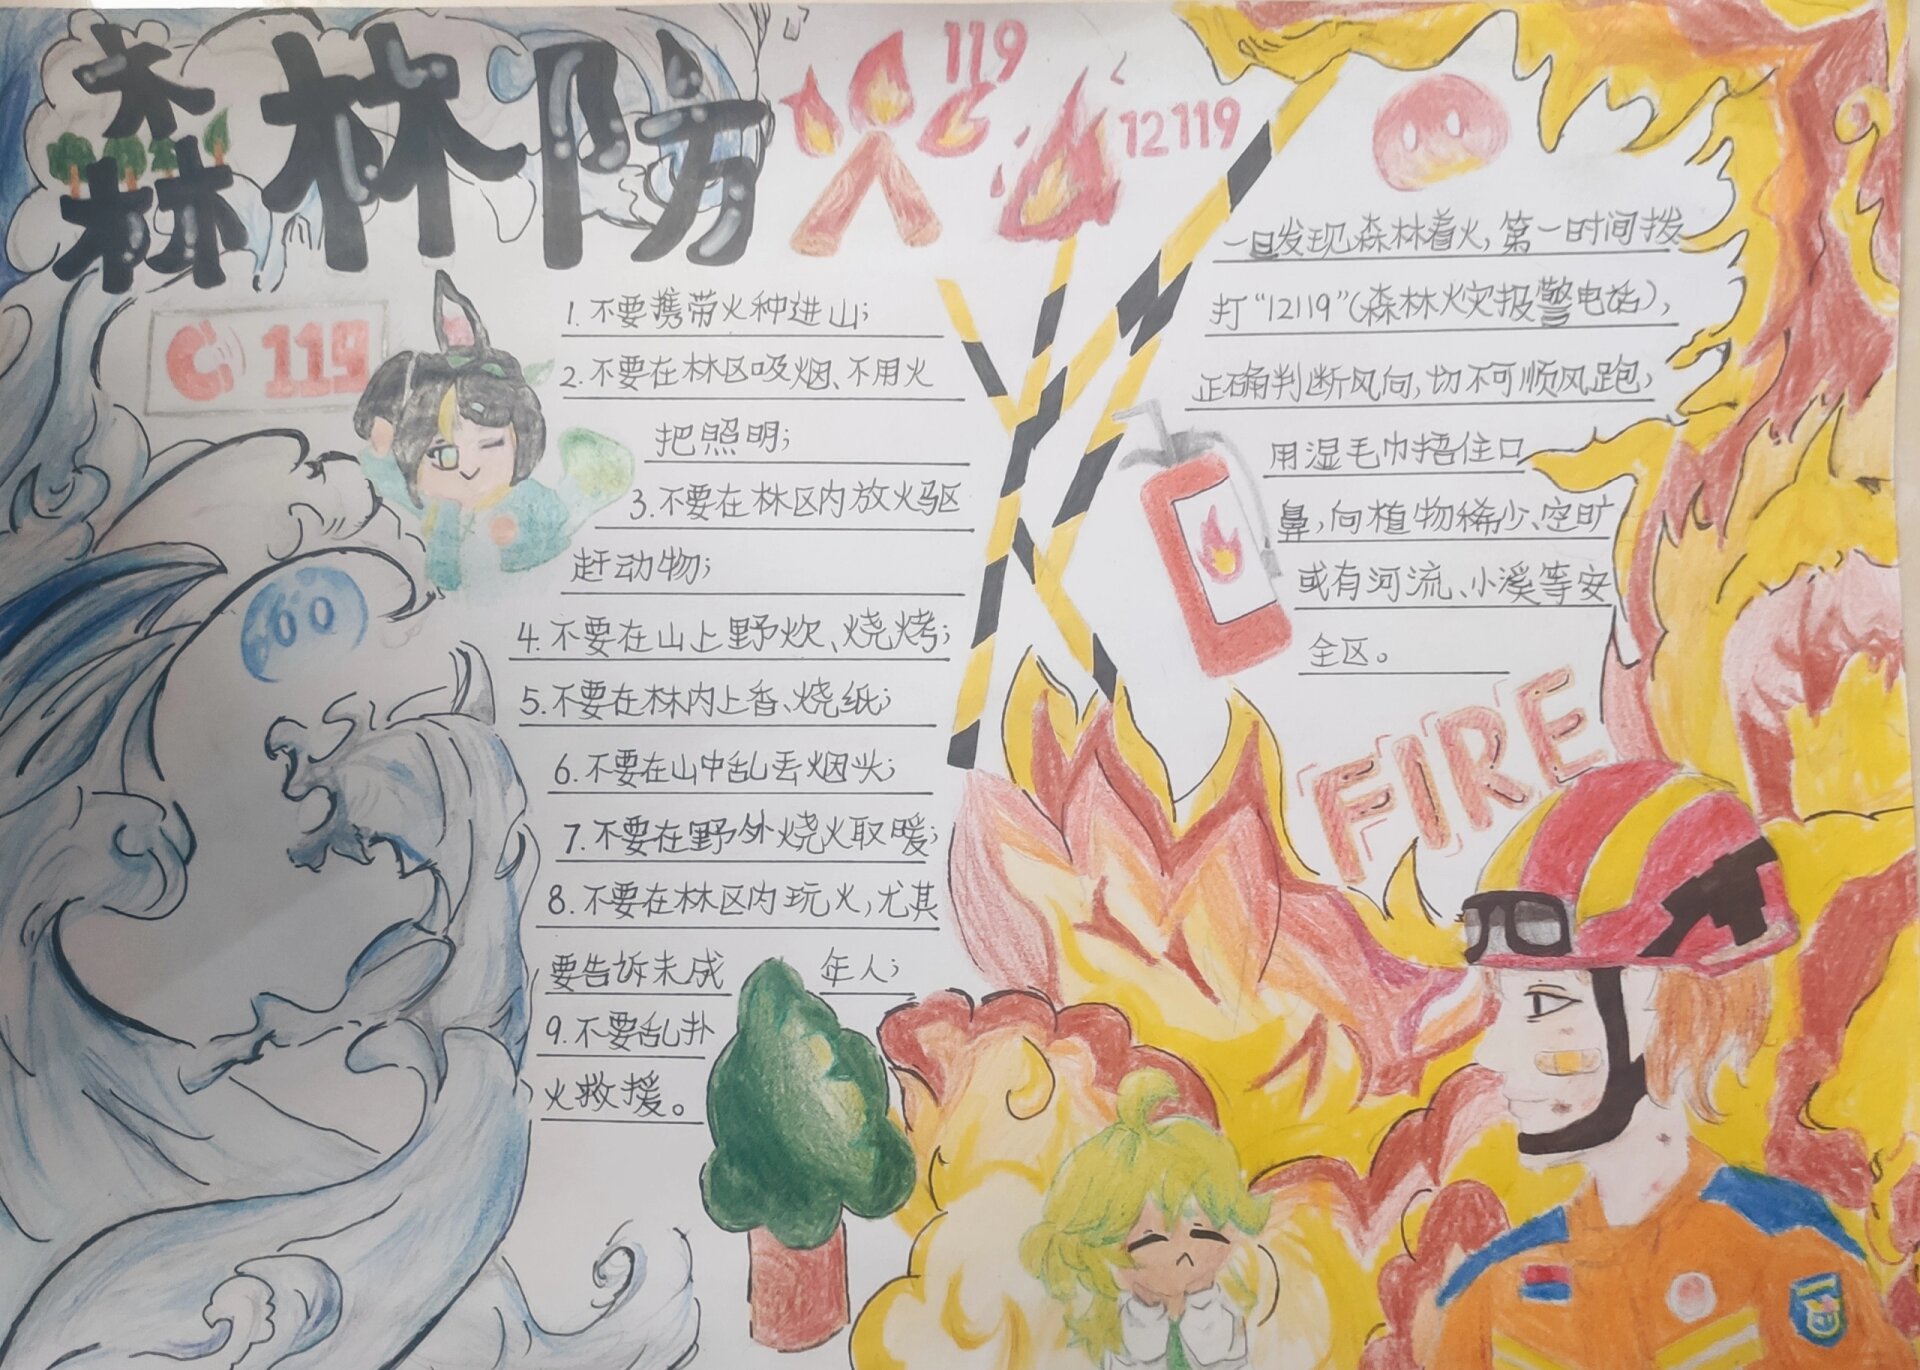 森林防火
119
12119
119
1.不要携带火种进山;
2.不要在林区吸烟、不用火
把照明;
3.不要在林区内放火驱
赶动物;
4.不要在山上野炊、烧烤;
5.不要在林内上香、烧纸;
6.不要在山中乱丢烟头;
7.不要在野外烧火取暖;
8.不要在林区内玩火,尤其
要告诉未成 年人;
9.不要乱扑
火救援。
一旦发现森林着火,第一时间拨
打“12119”(森林火灾报警电话),
正确判断风向,切不可顺风跑,
用湿毛巾捂住口
鼻,向植物稀少、空旷
或有河流、小溪等安
全区。
FIRE